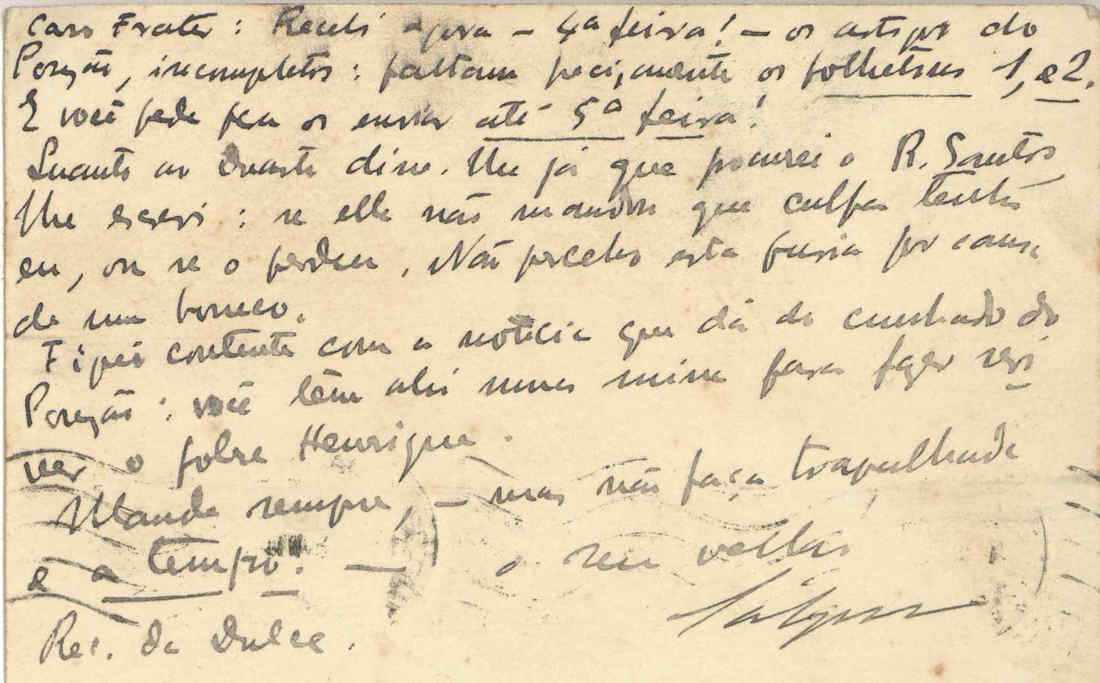 Caro Frater: Recebi agora – 4ª feira! – os artigos do
Ponção, incompletos: faltam precisamente os folhetins 1, e 2.
E você pede pra os enviar até 5ª feira!
Quanto ao Duarte disse-lhe já que procurei o R. Santos
lhe escrevi: se elle não mandou que culpa tenho
eu, ou se o perdeu. Não percebo esta furia por causa
de um boneco.
Fiquei contente com a noticia que dá do cunhado do
Ponção: você têm ahi uma mina para fazer revi
ver o pobre Henrique.
Mande sempre, – mas não faça trapalhada
e a tempo! — o seu velho
Rec. da Dulce.